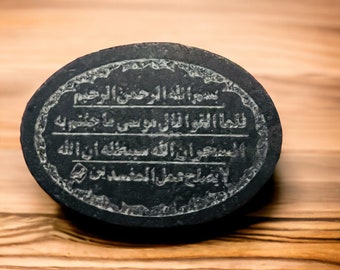 بسم الله الرحمن الرحيم
فلما القوا قال موسى ما جئتم به
السحر ان الله سيبطله ان الله
لا يصلح عمل المفسدين